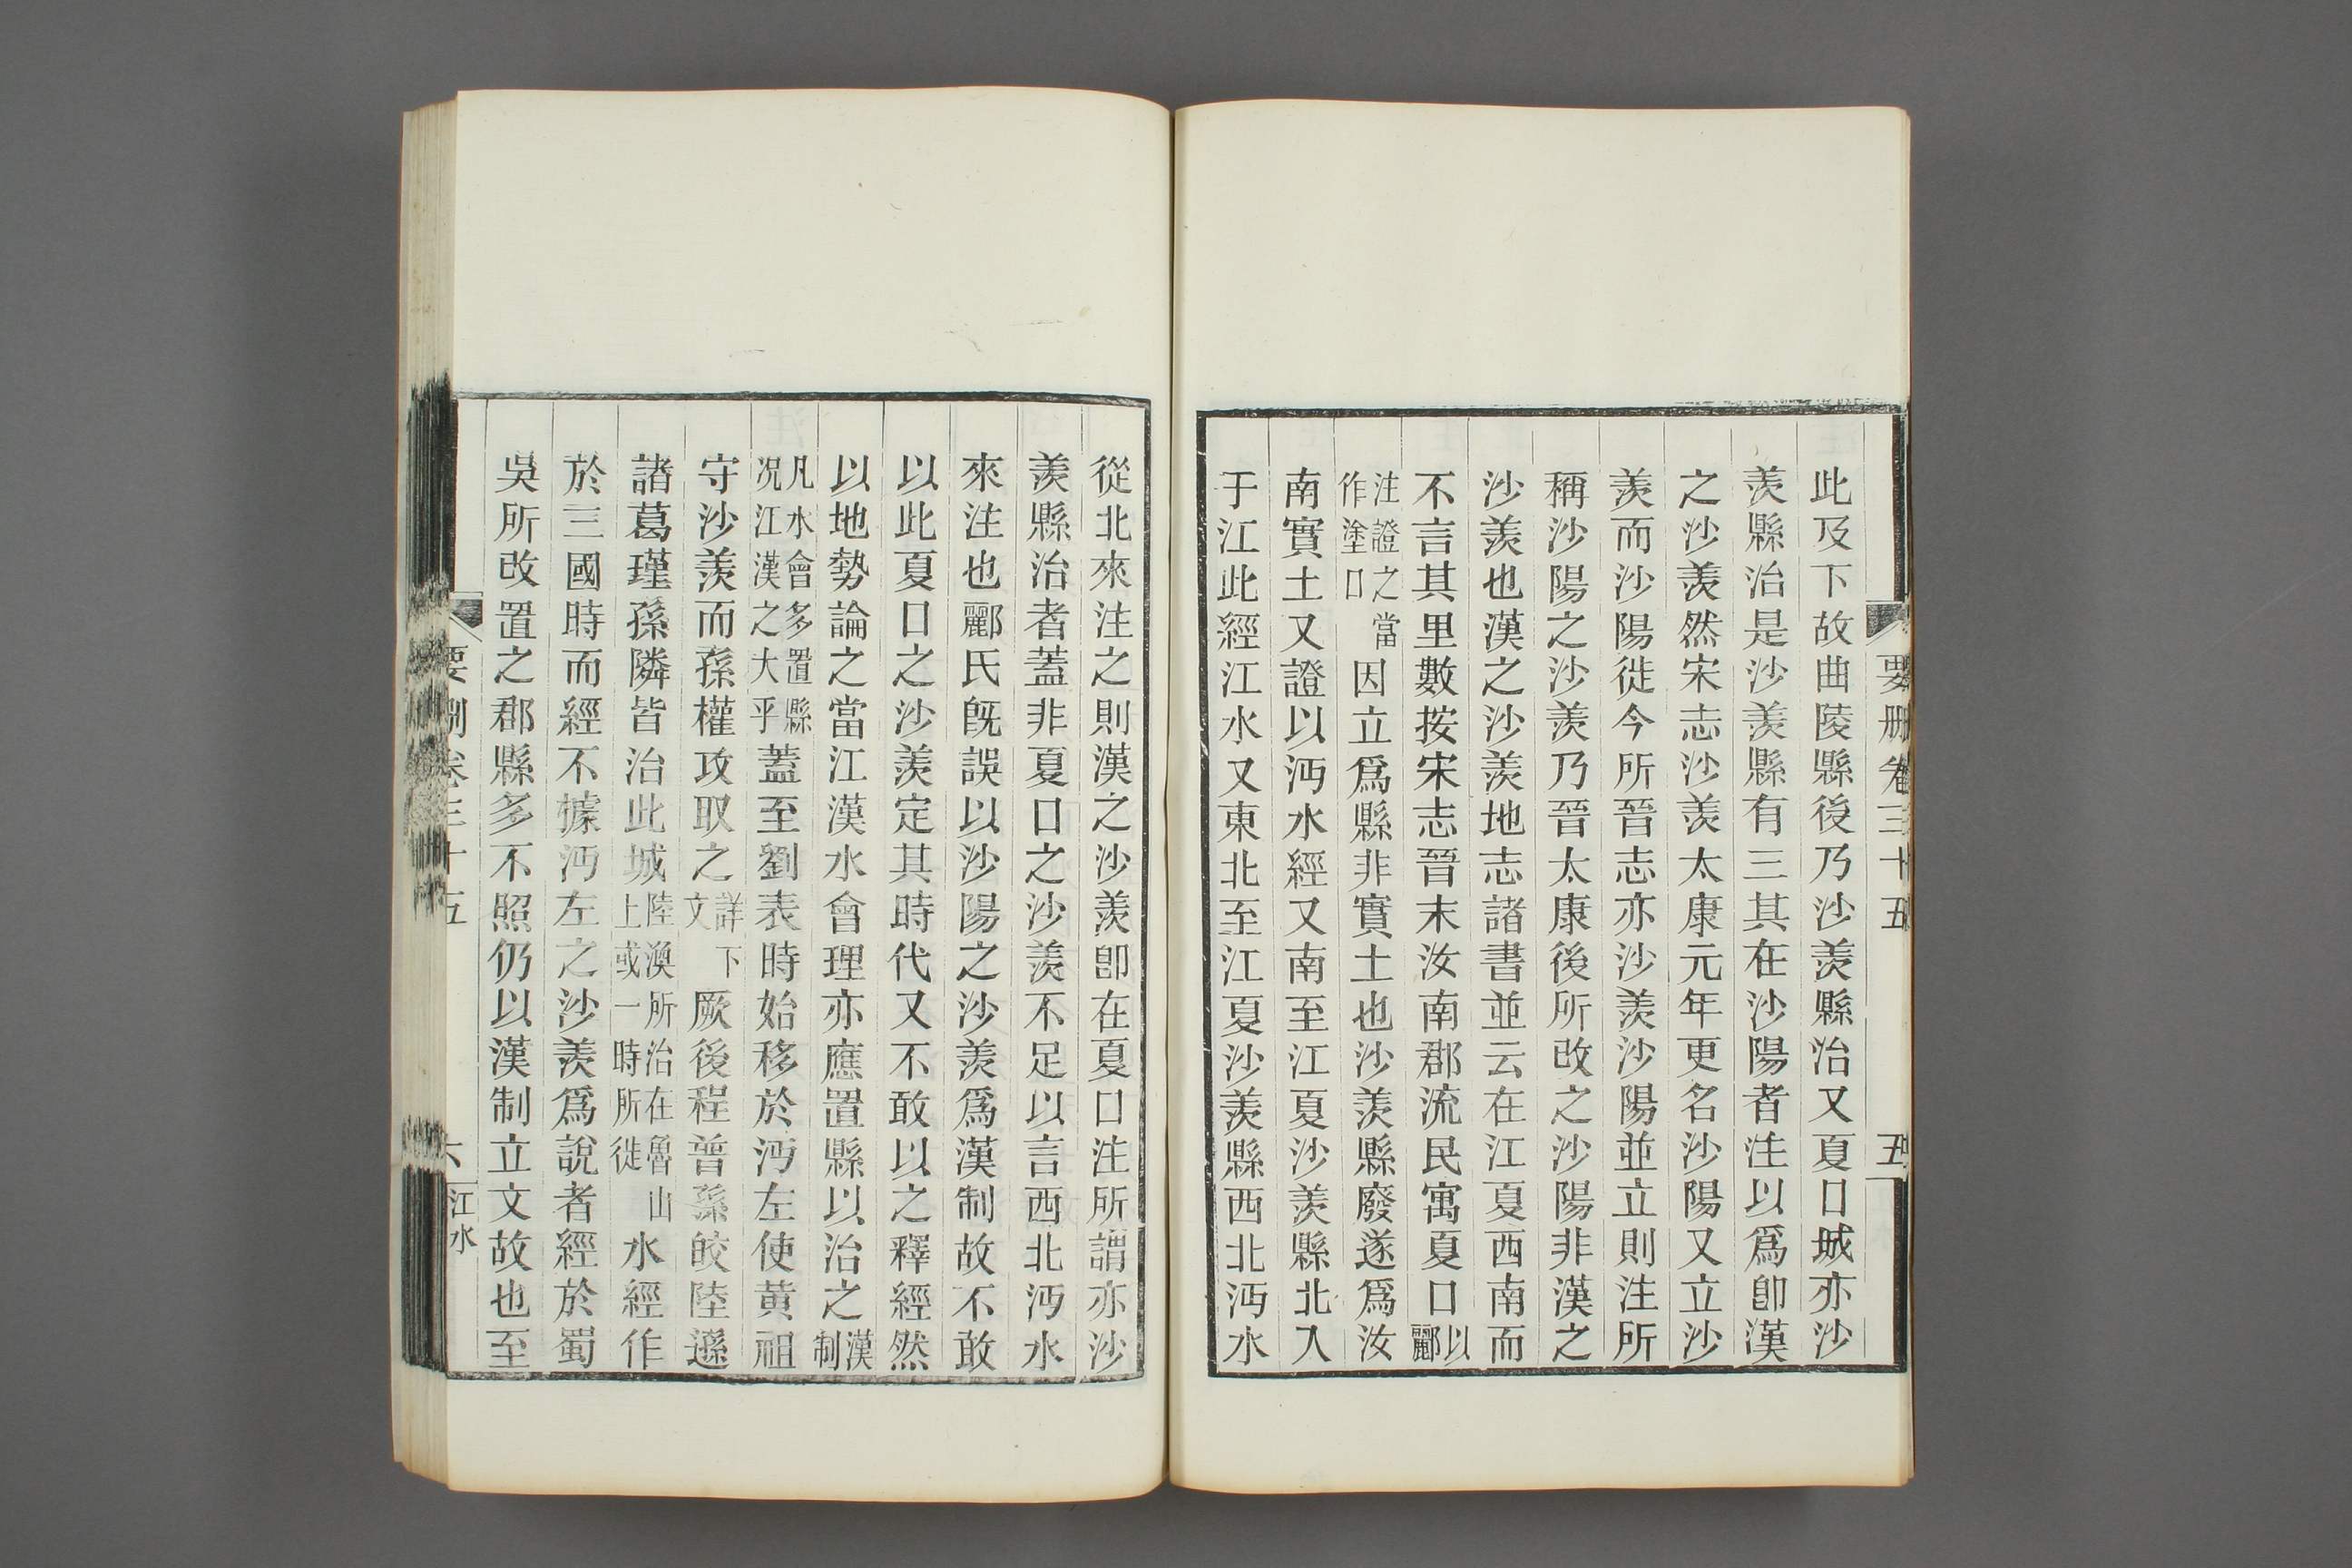 要刪卷三十五
五
此及下故曲陵縣後乃沙羨縣治又夏口城亦沙
羨縣治是沙羨縣有三其在沙陽者注以爲卽漢
之沙羨然宋志沙羨太康元年更名沙陽又立沙
羨而沙陽徙今所晉志亦沙羨沙陽並立則注所
稱沙陽之沙羨乃晉太康後所改之沙陽非漢之
沙羨也漢之沙羨地志諸書並云在江夏西南而
不言其里數按宋志晉末汝南郡流民寓夏口以酈
注證之當作塗口因立爲縣非實土也沙羨縣廢遂爲汝
南實土又證以沔水經又南至江夏沙羨縣北入
于江此經江水又東北至江夏沙羨縣西北沔水
從北來注之則漢之沙羨卽在夏口注所謂亦沙
羨縣治者蓋非夏口之沙羨不足以言西北沔水
來注也酈氏旣誤以沙陽之沙羨爲漢制故不敢
以此夏口之沙羨定其時代又不敢以之釋經然
以地勢論之當江漢水會理亦應置縣以治之漢制
凡水會多置縣况江漢之大乎蓋至劉表時始移於沔左使黃祖
守沙羨而孫權攻取之詳下文厥後程普孫皎陸遜
諸葛瑾孫隣皆治此城陸渙所治在魯山上或一時所徙水經作
於三國時而經不據沔左之沙羨爲說者經於蜀
吳所改置之郡縣多不照仍以漢制立文故也至
要刪卷三十五
六
江水